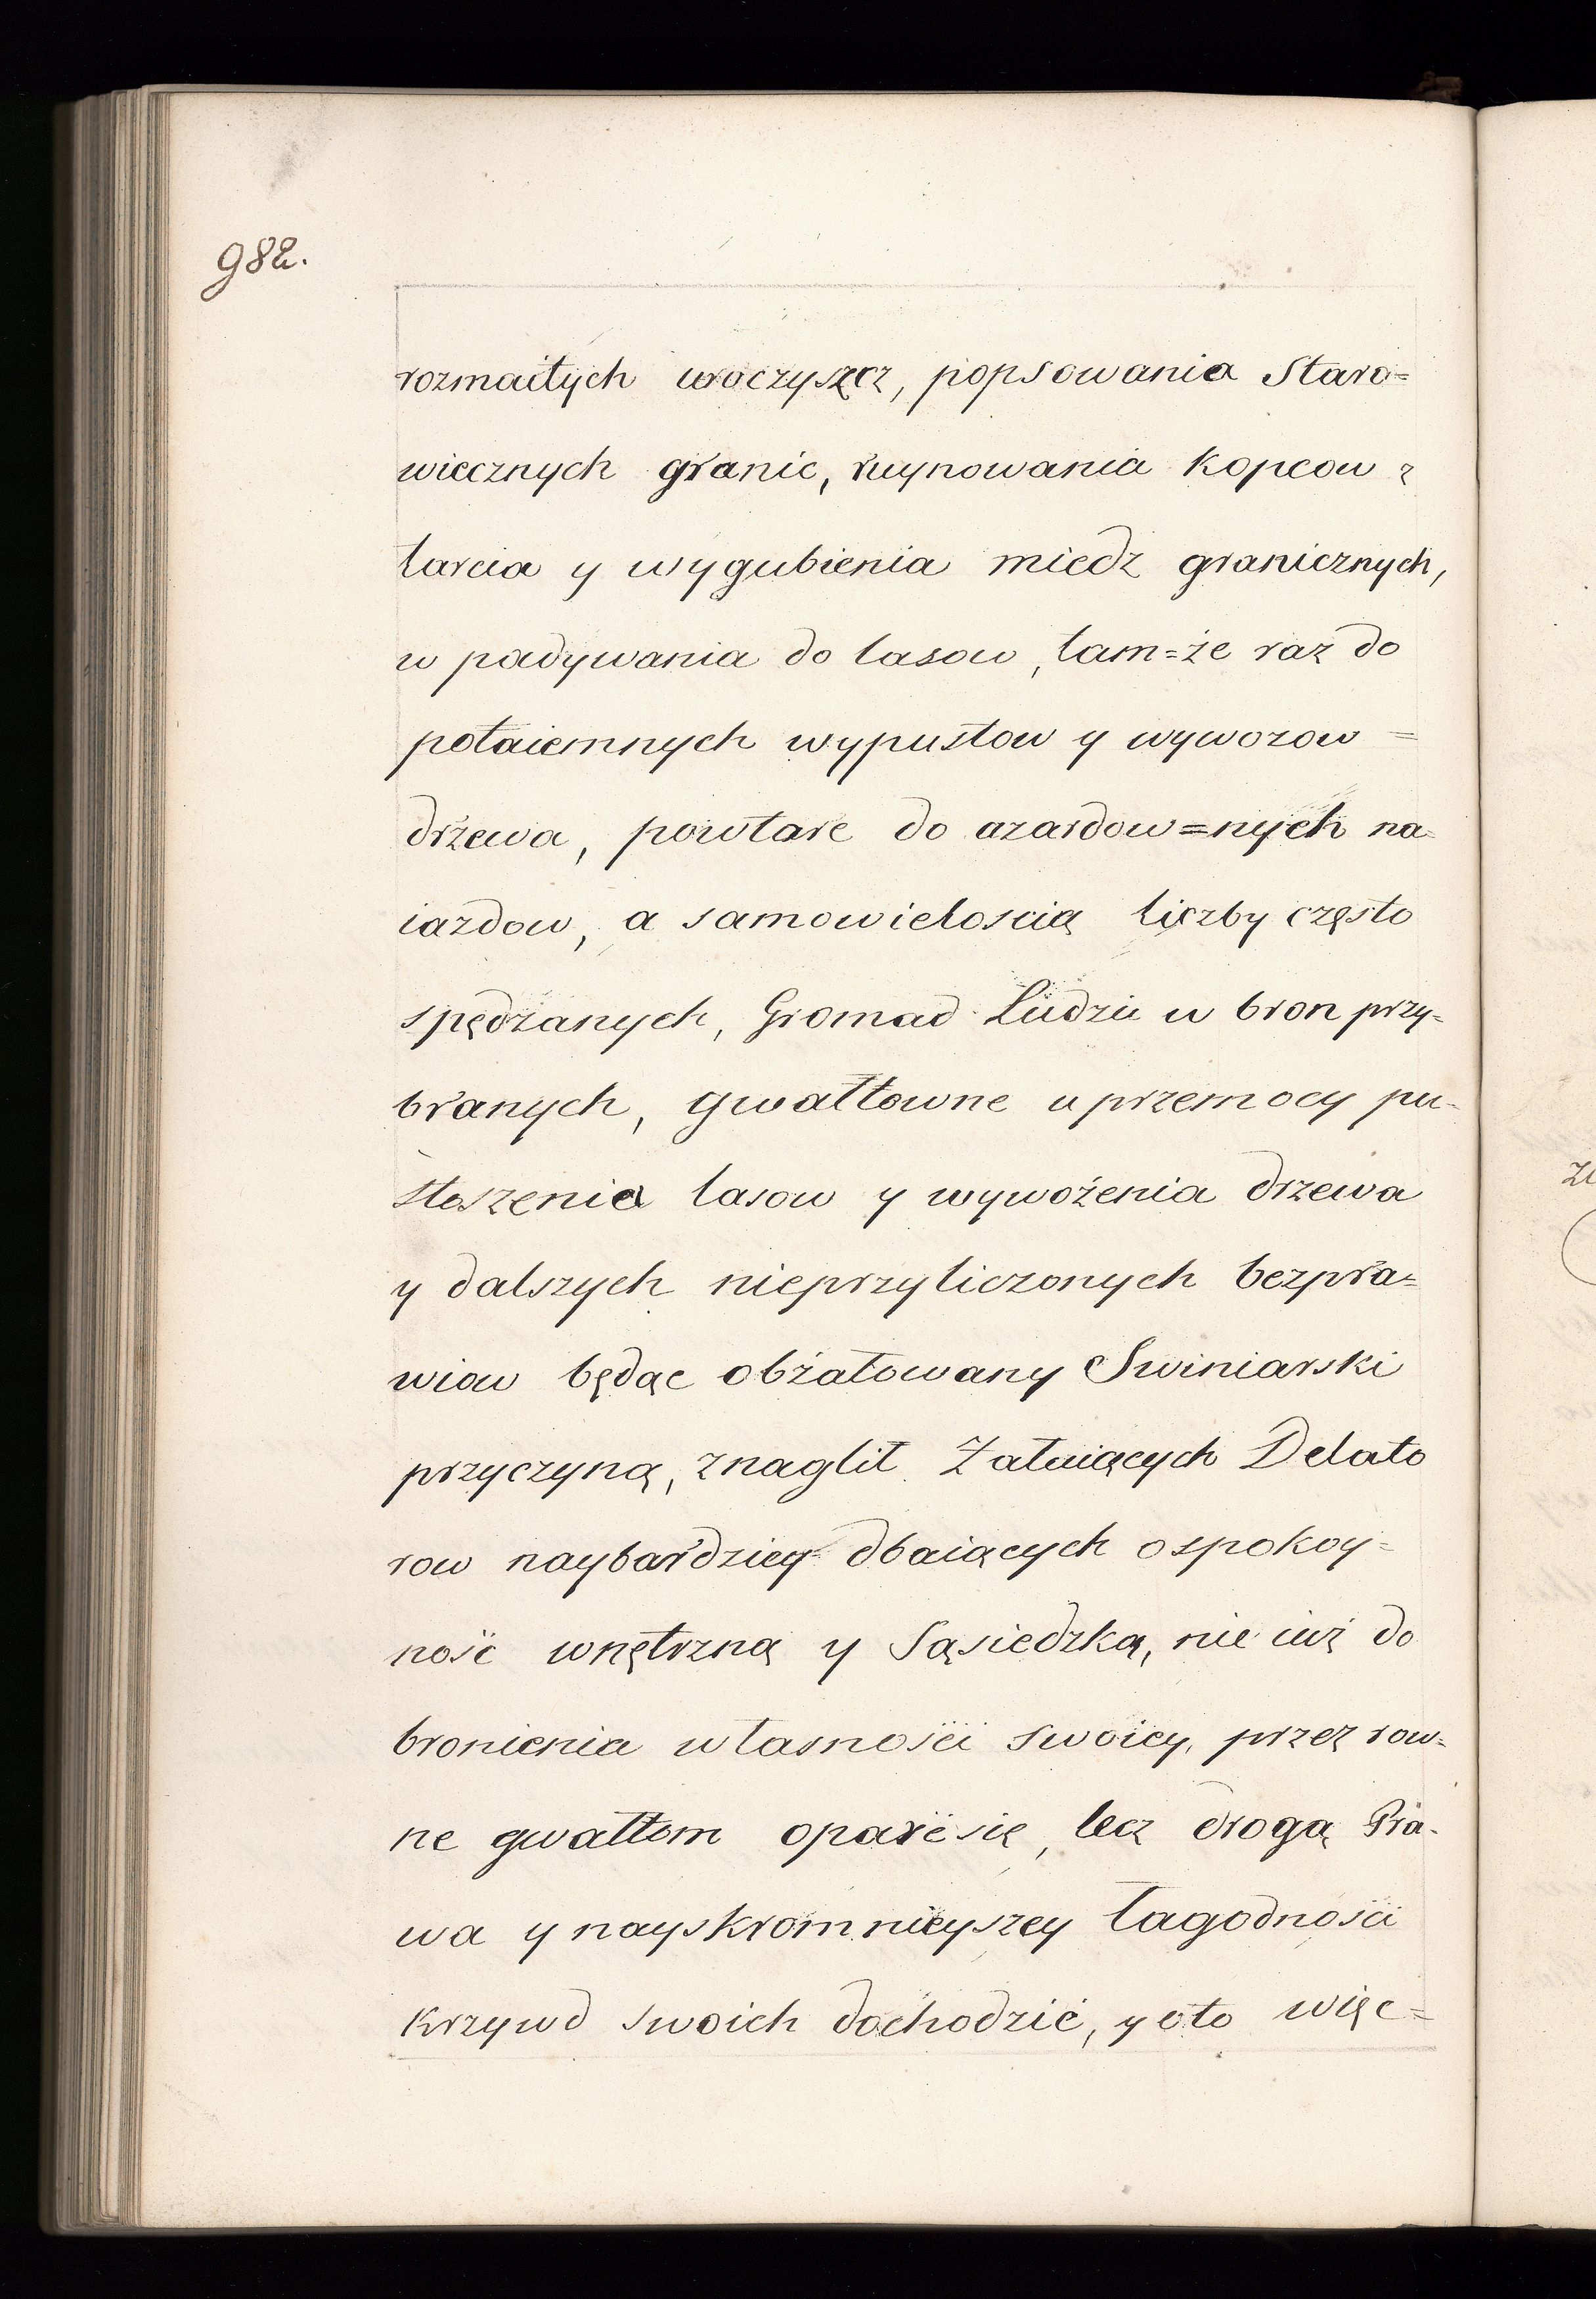 982.
rozmaitych uroczyszcz, popsowania Staro=
wiecznych granic, ruynowania kopcow z
tarcia y wygubienia miedz granicznych,
w padywania do lasow, tam=że raz do
potaiemnych wypustow y wywozow =
drzewa, powtare do azardow=nych na=
iazdow, a samowieloscią liczby często
spędzanych, Gromad Ludzii w bron przy=
branych, gwałtowne u przemocy pu=
stoszenia lasow y wywożenia drzewa
y dalszych nieprzyliczonych bezpra=
wiow będąc obżałowany Swiniarski
przyczyną, znaglił Załuiących Delato
row naybardziey dbaiących o spokoy=
ność wnętrzną y Sąsiedzką, nie iuż do
bronienia własności swoiey, przez row=
ne gwałtom oparćie się, lecz drogą Pra=
wa y nayskromnieyszey łagodności
krzywd swoich dochodzić, y oto więc=